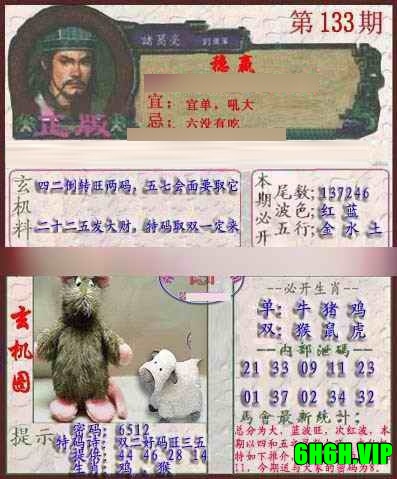 第133期
諸葛亮
稳赢
宜：宜单，吼大
忌：六没有吃
正版
玄机料
四二倒转旺两码，五七会面要取它
二十二五发大财，特码取双一定来
本期必开
尾数：137246
波色：红 蓝
五行：金 水 土
玄机图
必开生肖
单：牛 猪 鸡
双：猴 鼠 虎
内部泄码
21 33 09 11 23
01 37 02 34 32
馬會最新统计：
总分为大，蓝波旺，次红波，本
期以四和五
特如下推介
11，今期送与大家的密码为8．
提示
密码：6512
特码诗：双二好码旺三五
提供：44 46 28 14
生肖：鸡，猴
6HGH.VIP